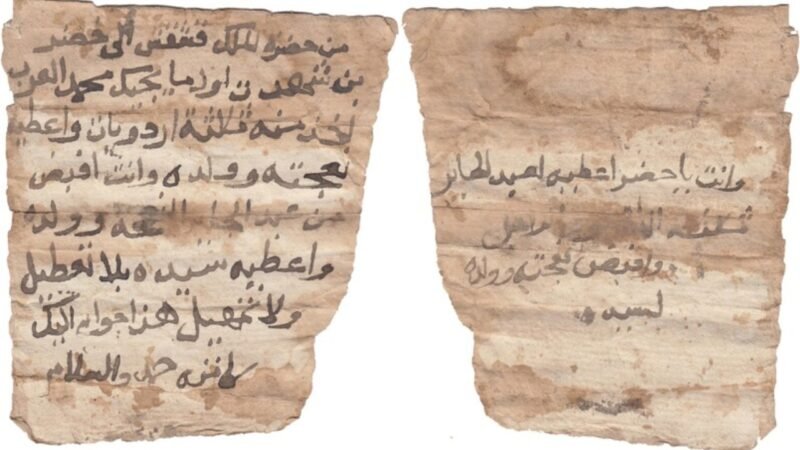 من حضرة الملك قشقش الى خضر
بن شنهدت اول ما يجيك محمد العرب
اخذ منه ثلثة اردويات واعطيه
نعجته وولده وانت اقبض
من عبد الجابر النعجة وولده
واعطيه سيده بلا تعطيل
ولا تمهيل هذا جوابه اليك
كاتبه حمد والسلام
وانت يا خضر اعطيه لعبد الجابر
ثلثة
واقبض نعجته وولده
لسيده